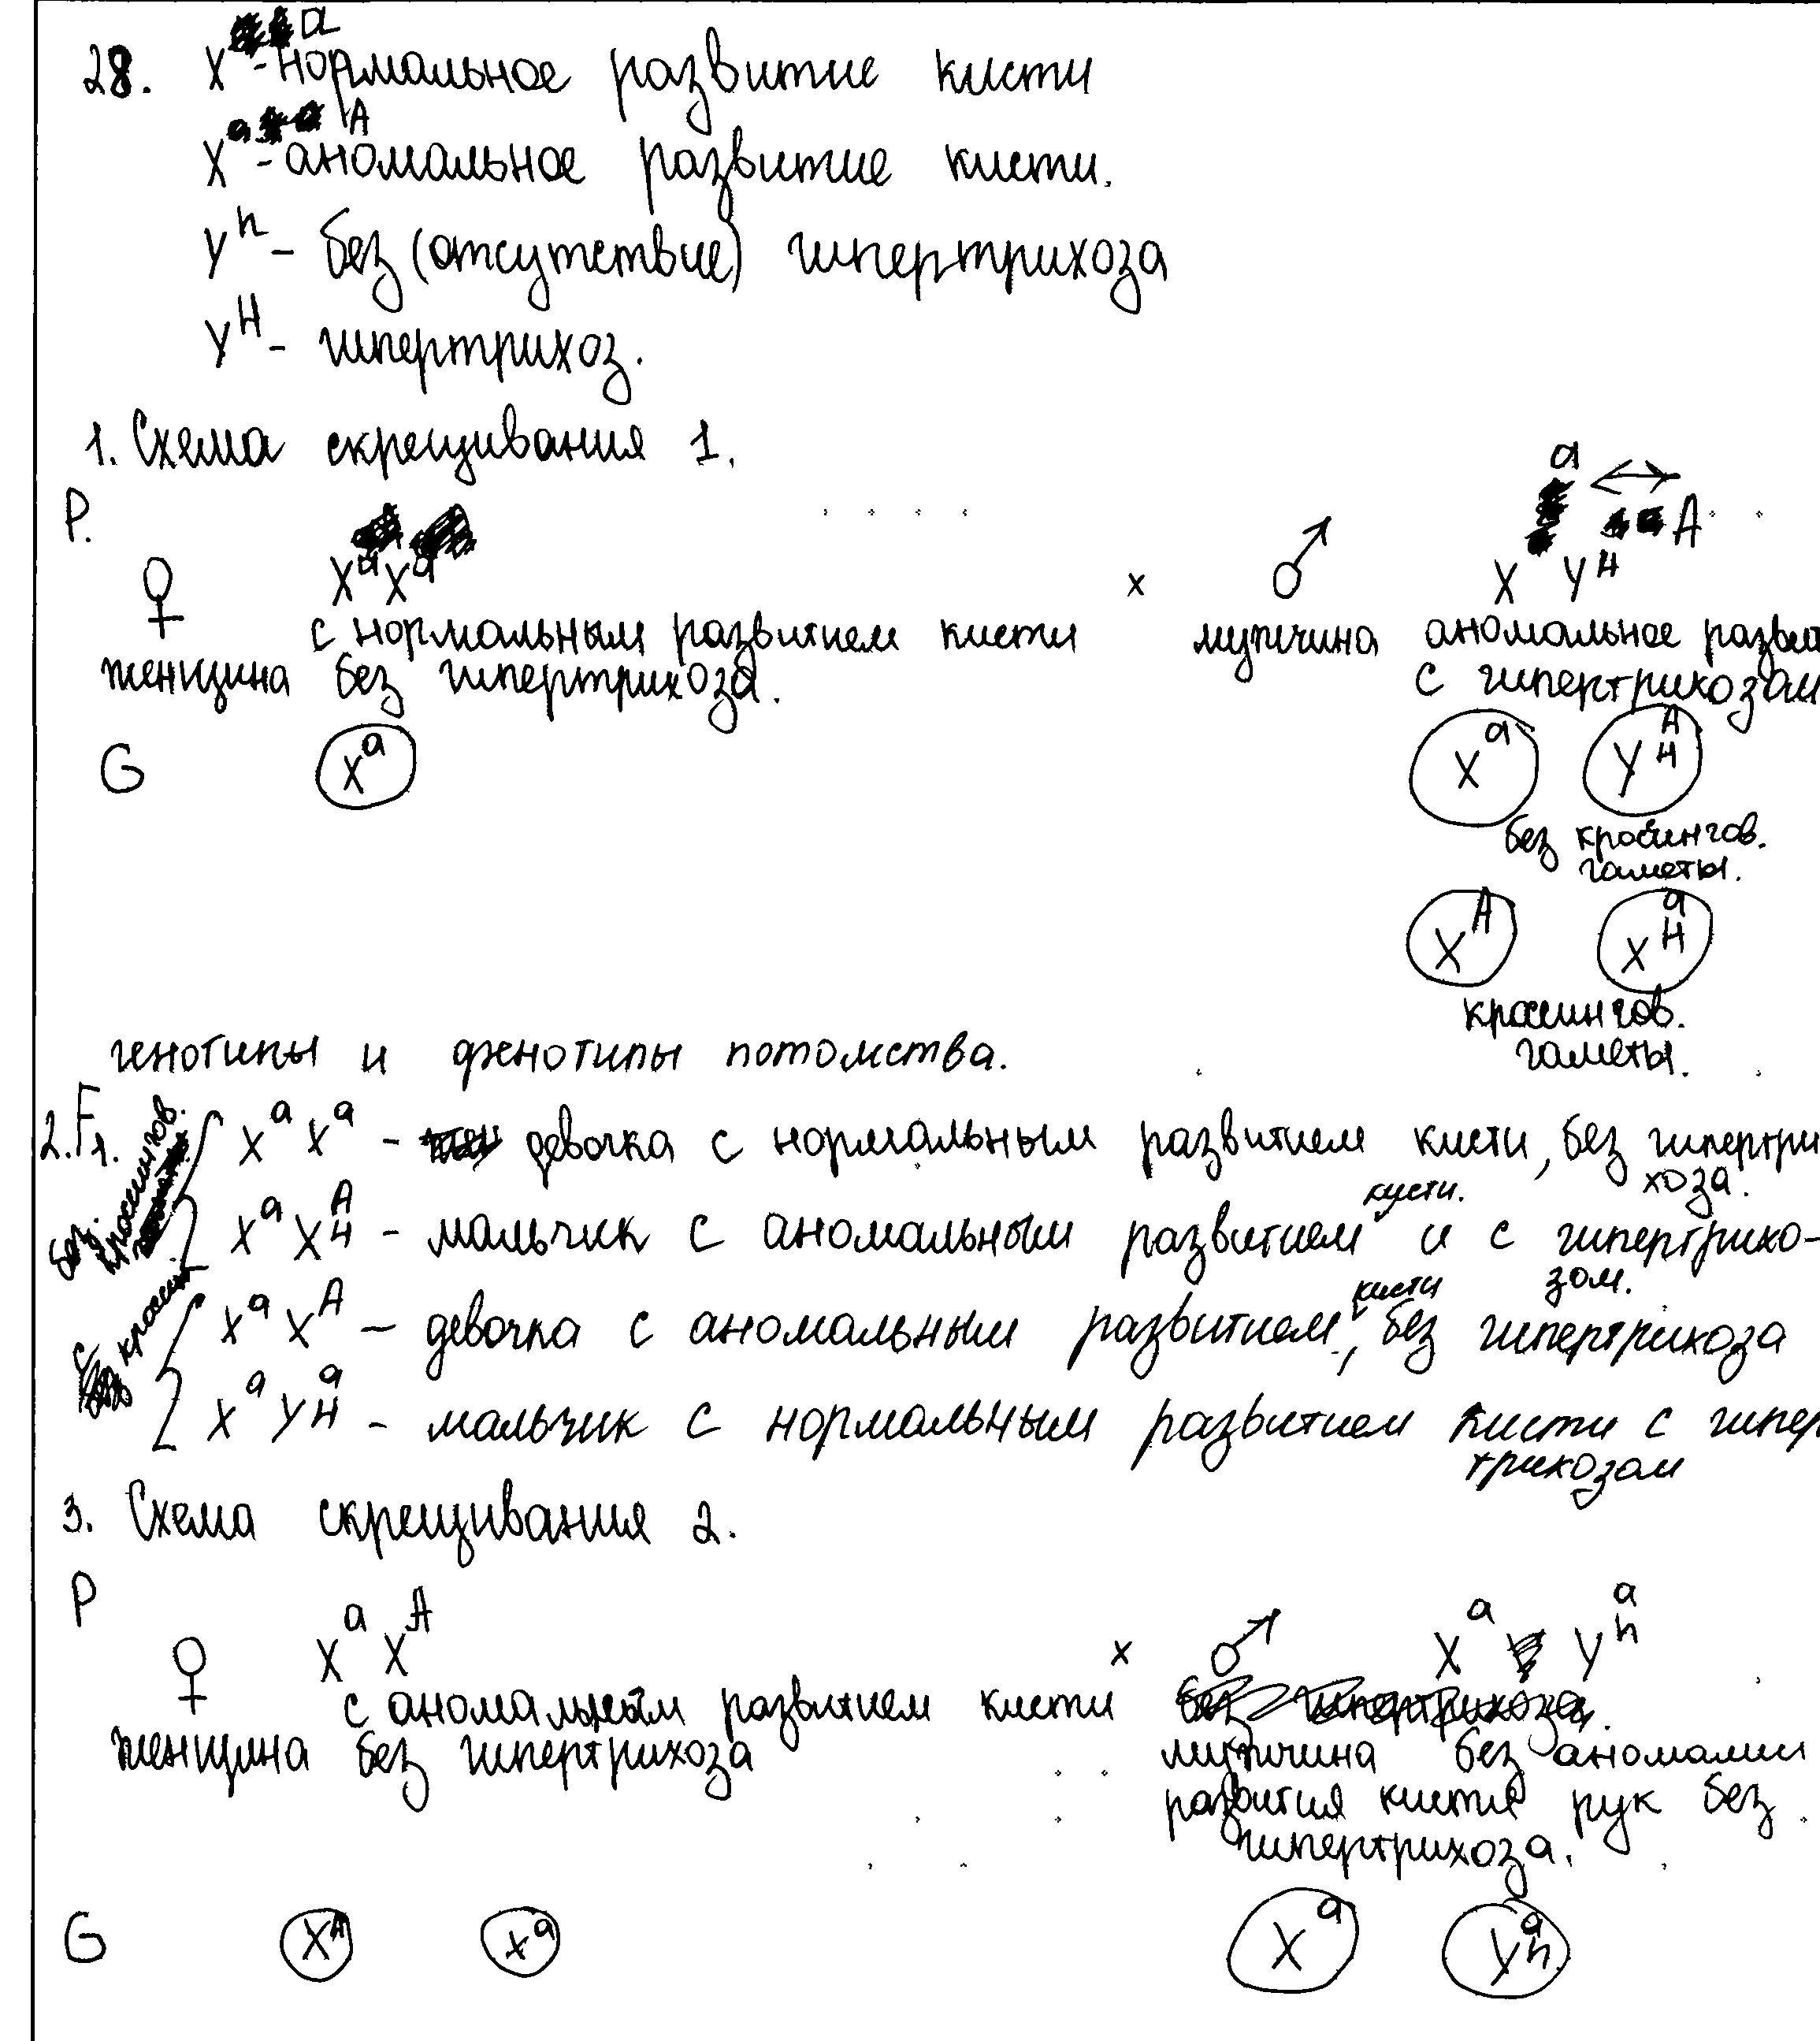 28. X^a - нормальное развитие кисти
X^A - аномальное развитие кисти.
Y^h - без (отсутствие) гипертрихоза
Y^H - гипертрихоз.
1. Схема скрещивания 1.
P.
♀ X^a X^a x ♂ X^a Y^AH
с нормальным развитием кисти мужчина аномальное развит
женщина без гипертрихоза. с гипертрихозам
G X^a X^a Y^AH
без кросингов.
гаметы.
X^A X^aH
кросингов.
гаметы.
генотипы и фенотипы потомства.
2. F1. без кроссингов. X^a X^a - девочка с нормальным развитием кисти, без гипертри
хоза.
X^a X^AH - мальчик с аномальным развитием кисти. и с гипертрихо-
зом.
с кроссин X^a X^A - девочка с аномальным развитием кисти, без гипертрихоза
X^a Y^aH - мальчик с нормальным развитием кисти с гипер
трихозам
3. Схема скрещивания 2.
P
♀ X^a X^A x ♂ X^a Y^ah
с аномальным развитием кисти
женщина без гипертрихоза мужчина без аномалии
развития кисти рук без
гипертрихоза.
G X^A X^a X^a Y^ah